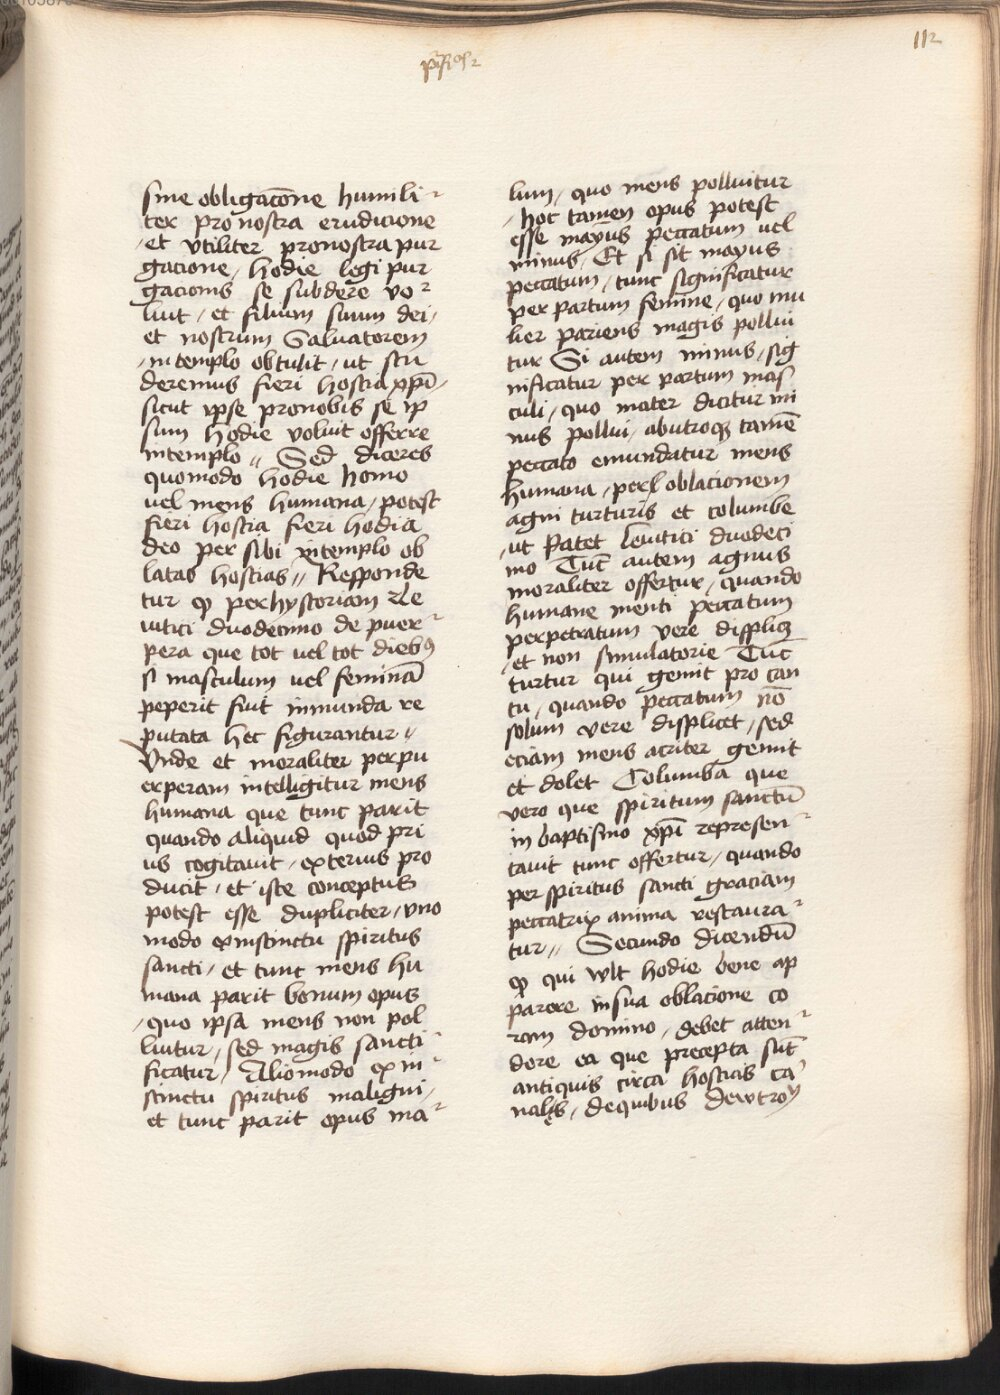 112
sine obligac̄one humili
ter pro nostra erudicione
et vtiliter pronostra pur
gacione / hodie legi pur
gacionis se subdere vo
luit / et filium suum dei /
et nostrum Saluatorem
in templo obtulit / ut stu
deremus fieri hostia xp̄i /
sicut ipse pronobis se ip
sum hodie voluit offerre
intemplo // Sed diceres
quomodo hodie homo
uel mens humana / potest
fieri hostia fieri hodia
deo per sibi intemplo ob
latas hostias // Responde
tur ꝙ perhystoriam Le
uitici duodecimo de puer
pera que tot uel tot diebꝰ
si masculum uel feminā
peperit fuit inmunda re
putata hec figurantur //
Vnde et moraliter perpu
erperam intelligitur mens
humana que tunc parit
quando aliquid quod pri
us cogitauit / exterius pro
ducit / et iste conceptus
potest esse dupliciter / vno
modo exinstinctu spiritus
sancti / et tunc mens hu
mana parit bonum opus
/ quo ipsa mens non pol
luitur / sed magis sancti
ficatur / Aliomodo ex in
stinctu spiritus maligni /
et tunc parit opus ma
lum / quo mens polluitur
/ hoc tamen opus potest
esse mayus peccatum uel
minus / Et si sit mayus
peccatum / tunc significatur
per partum femine / quo mu
lier pariens magis pollui
tur Si autem minus / sig
nificatur per partum mas
culi / quo mater dicitur mi
nus pollui / abutroqꝫ tamē
peccato emundatur mens
humana / per oblacionem
agni turturis et columbe
/ ut patet leuitici duodeci
mo Tūc autem agnus
moraliter offertur / quando
humane menti peccatum
perpetratum vere displicꝫ
/ et non simulatorie Tūc
turtur qui gemit pro can
tu / quando peccatum nō
solum vere displicet / sed
eciam mens acriter gemit
et dolet Columba que
vero que spiritum sanctū
in baptismo xp̄i represen
tauit tunc offertur / quando
per spiritus sancti graciam
peccatrix anima restaura
tur // Secundo dicendū
ꝙ qui wlt hodie bene ap
parere insua oblacione co
ram domino / debet atten
dere ea que precepta sūt
antiquis circa hostias ca
nales / dequibus dewtroꝰ